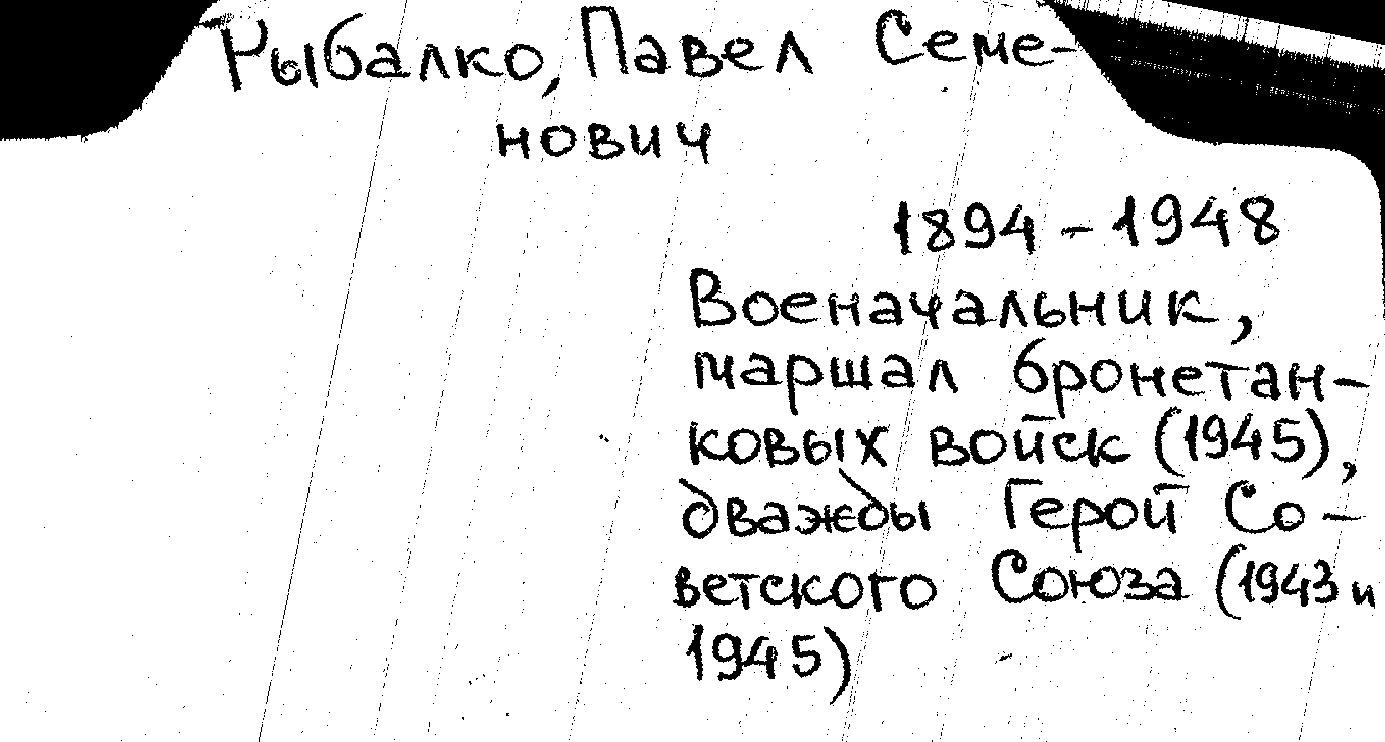 Рыбалко, Павел Семе-
нович
1894 - 1948
Военачальник,
маршал бронетан-
ковых войск (1945),
дважды Герой Со-
ветского Союза (1943 и
1945)